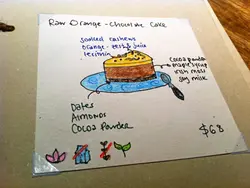 Raw Orange - Chocolate Cake
soaked cashews
orange - zest & juice
lecithin
cocoa powder
maple syrup
irish moss
soy milk
Dates
Almonds
Cocoa Powder
$6.8